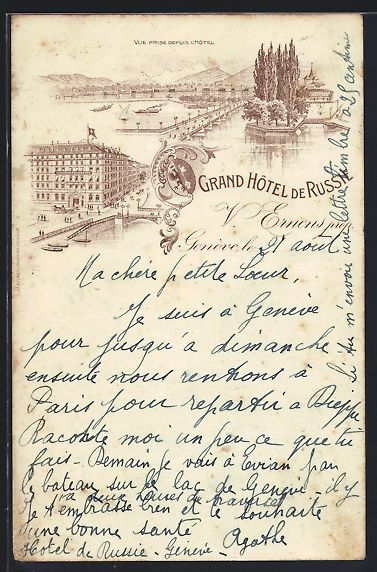 VUE PRISE DEPUIS L'HÔTEL
GRAND HÔTEL DE RUSSIE
V. Ernens prop.
Genève, le 21 août
Ma chère petite Sœur,
Je suis à Genève
pour jusqu'à dimanche
ensuite nous rentrons à
Paris pour repartir à Dieppe
Raconte moi un peu ce que tu
fais - Demain Je vais à Evian par
le bateau sur le lac de Genève - il y
a deux heures de traversée
Je t'embrasse bien et te souhaite
une bonne santé
Agathe
Hôtel de Russie - Genève -
Si tu m'envoie une lettre timbre à 25 centime